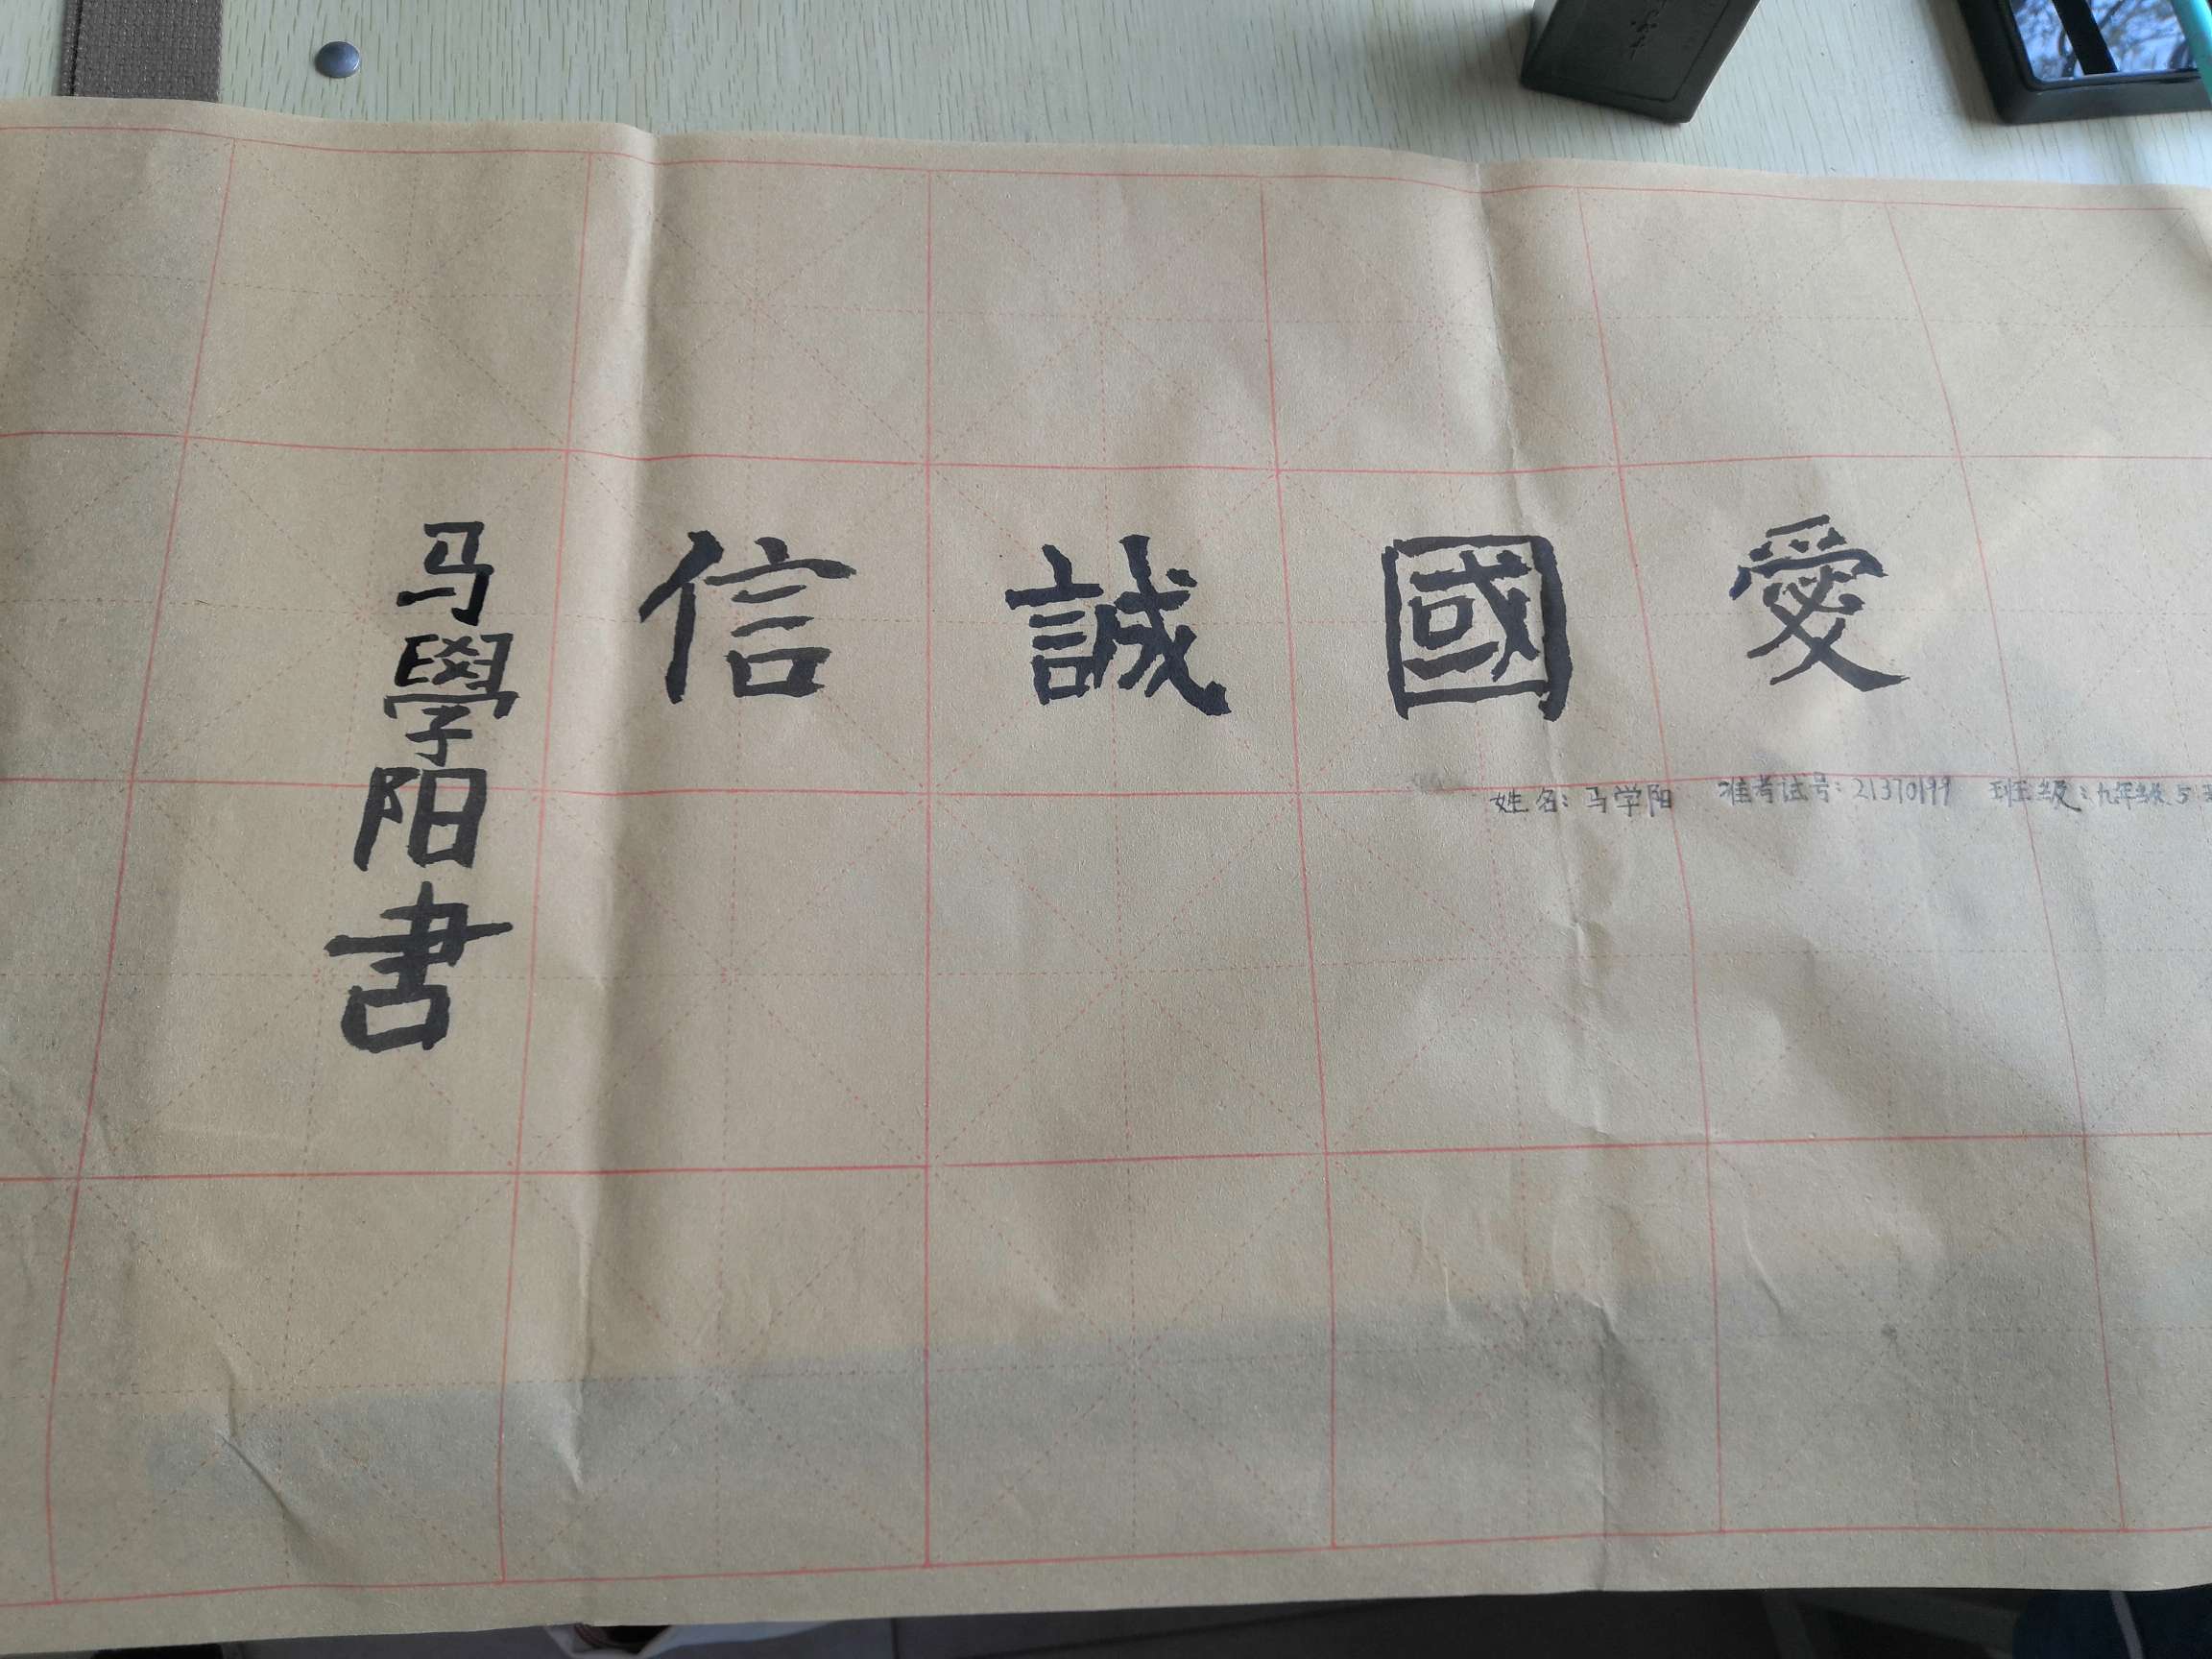 愛國誠信
马學阳書
姓名：马学阳 准考试号：21370199 班级：九年级5